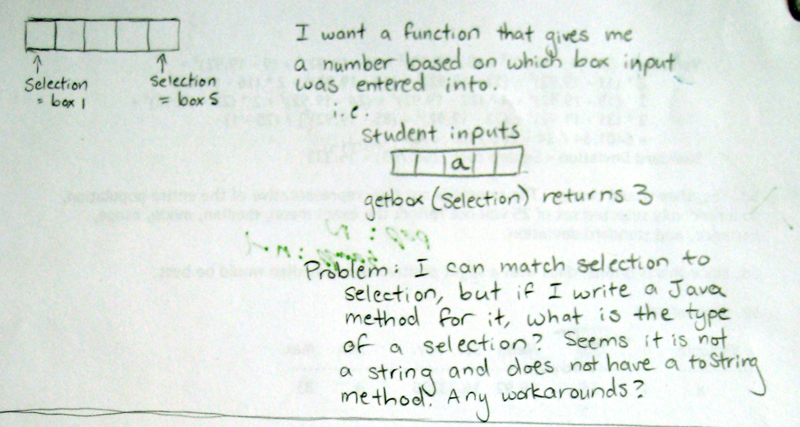 Selection
= box 1
Selection
= box 5
I want a function that gives me
a number based on which box input
was entered into.
Student inputs
a
getbox (Selection) returns 3
Problem: I can match selection to
selection, but if I write a Java
method for it, what is the type
of a selection? Seems it is not
a string and does not have a toString
method. Any workarounds?